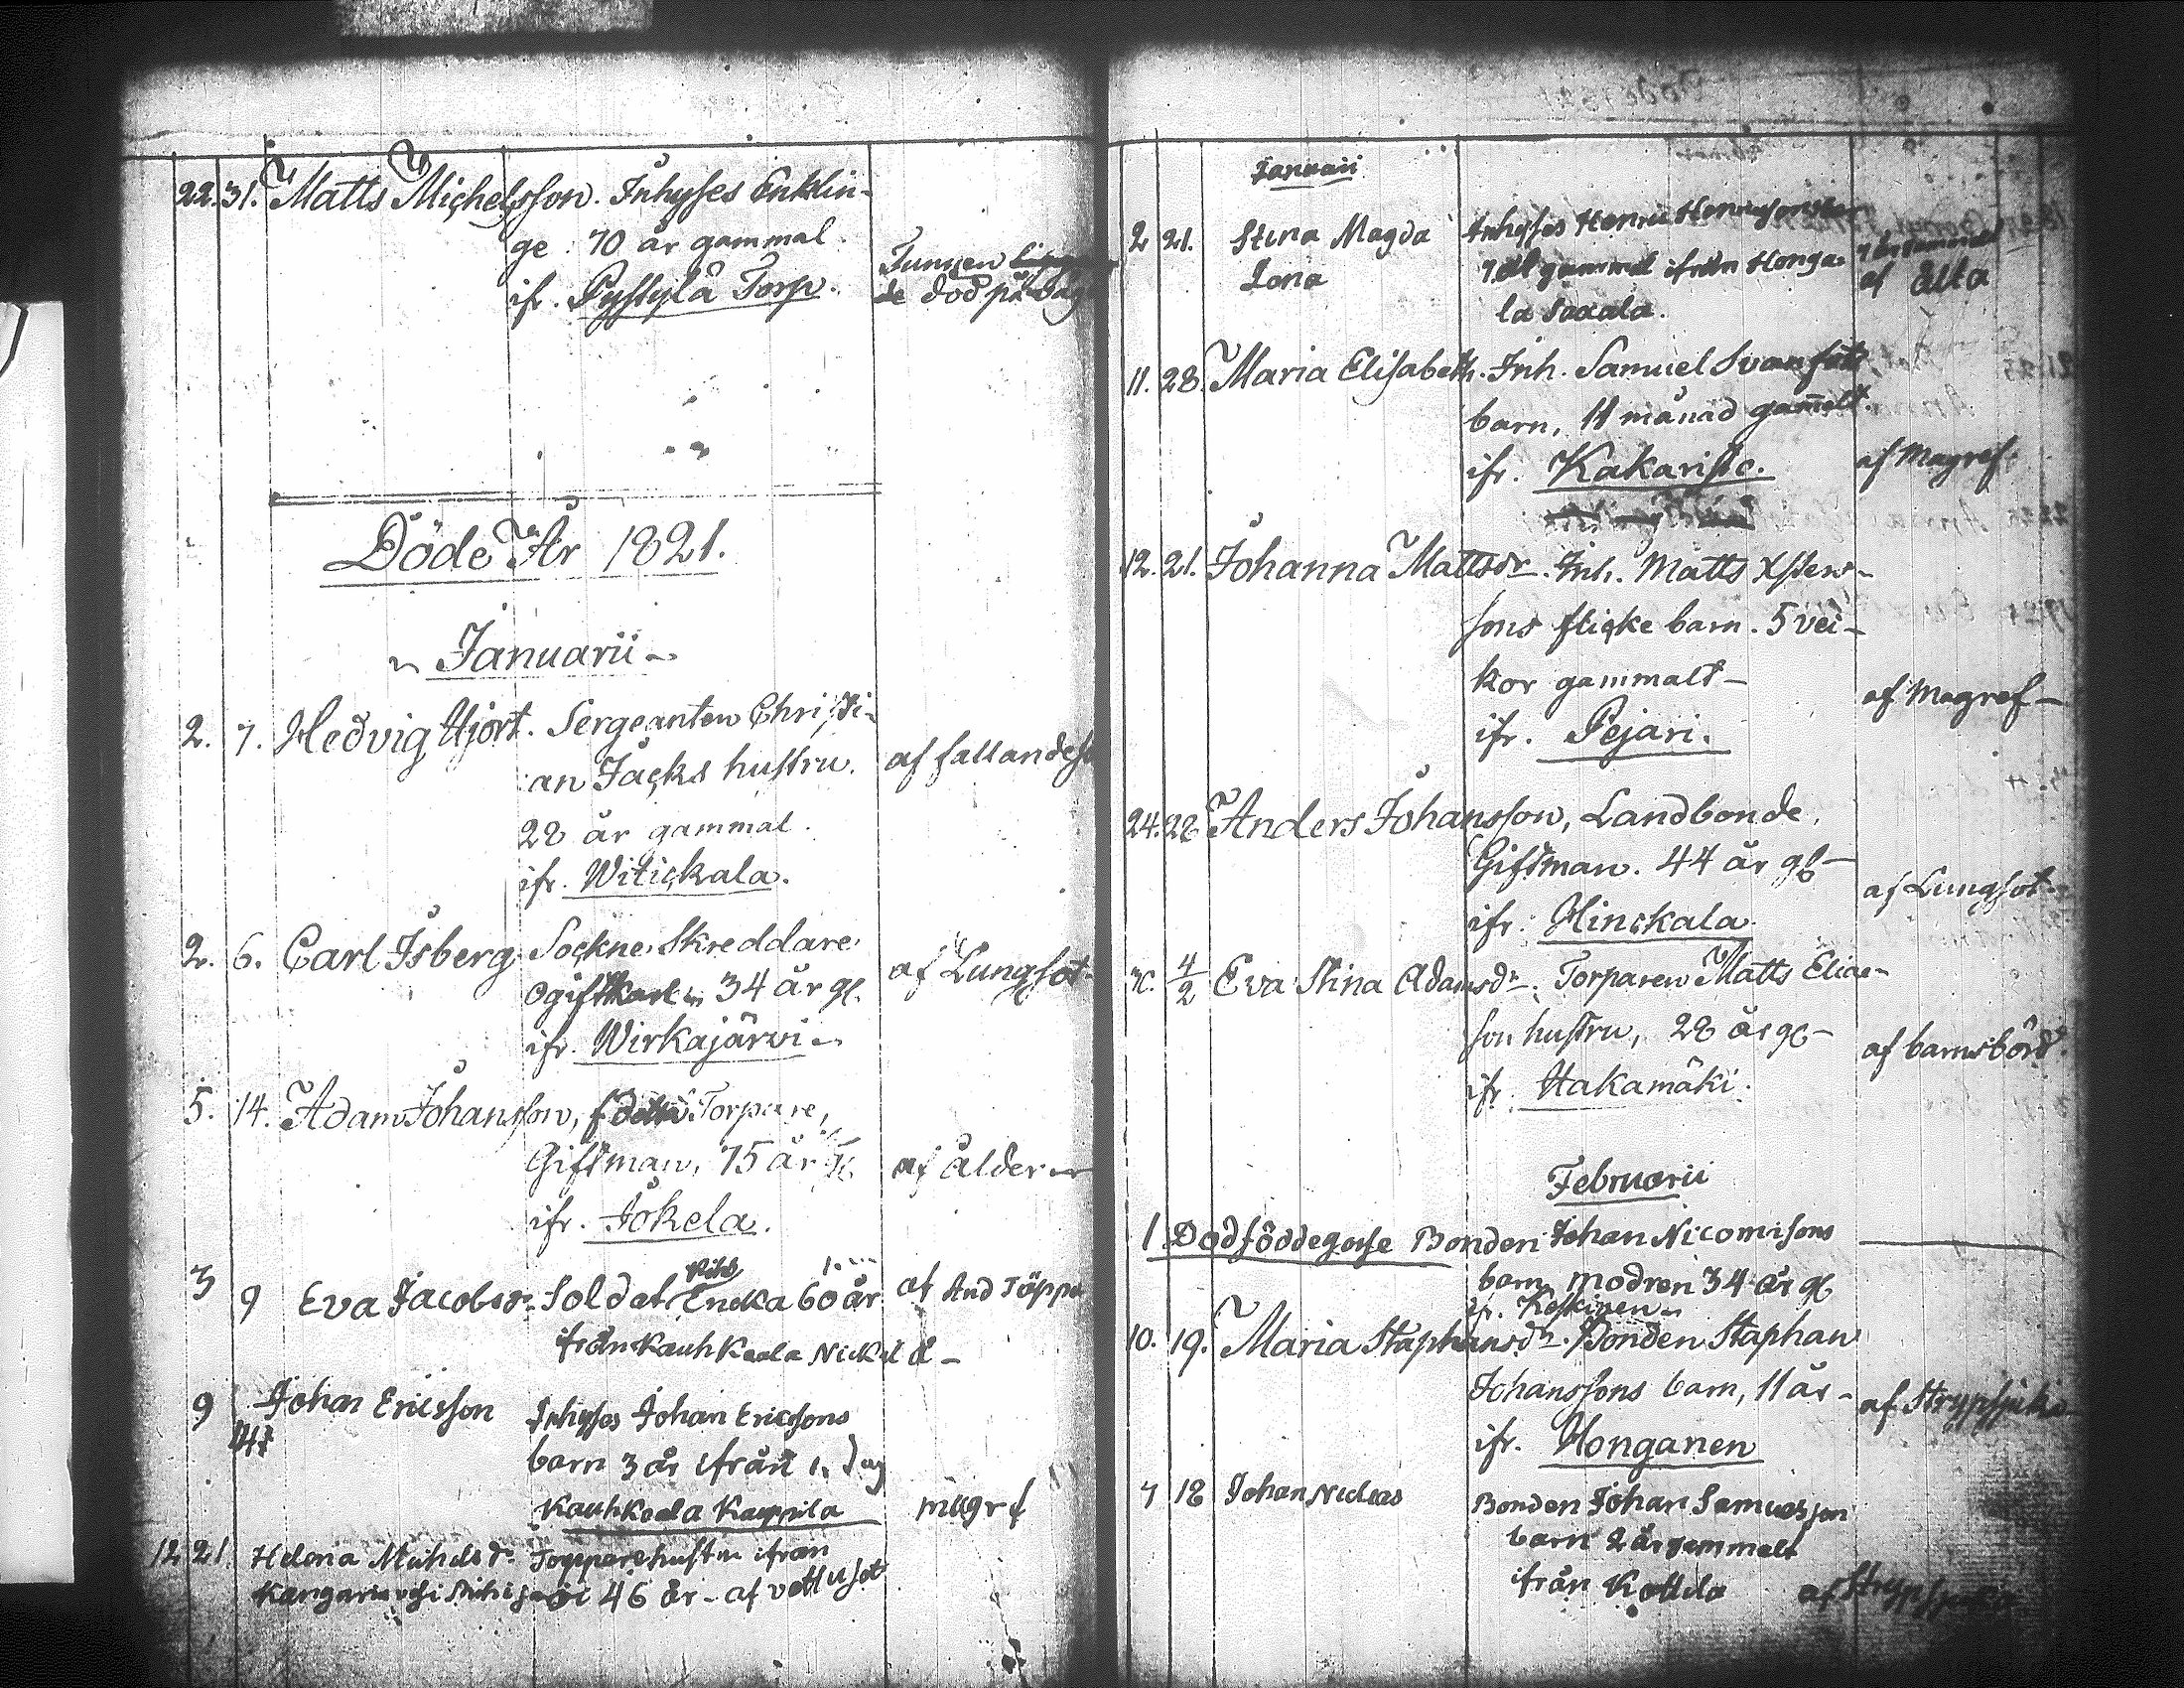 22. 31. Matts Michelsson. Inhyses Enklin-
ge. 70 år gammal
ifr. Pyssylä Torp.
död på
Döde År 1821.
Januarii
2. 7. Hedvig Hjort. Sergeanten Christi-
an Jacks hustru.
28 år gammal.
ifr. Witickala.
af fallandes
2. 6. Carl Isberg Sockne Skreddare
Ogift 34 år gl.
ifr. Wirkajärvi
af Lungsot
5. 14. Adam Johansson, Torpare,
Giftman, 75 år gl.
ifr. Jokela.
af ålder
3 9 Eva Jacobsdr. Soldat Enka 60 år
ifrån Kauhkoala
9 Johan Ericsson Inhyses Johan Ericssons
barn 3 år ifrån
Kauhkoala Kappila
magrf
12 21. Helena Michelsdr. Torpare hustru ifrån
46 år - af vattusot
Januarii
2 21. Stina Magda Inhyses Henric
Lona gammal ifrån Honga-
la Saxala.
af älta
11. 28. Maria Elisabeth. Inh. Samuel Svan
barn, 11 månad gamalt.
ifr. Kakaristo.
af Magref.
12. 21. Johanna Mattsdr. Inh. Matts Xsters-
sons flicke barn. 5 vei-
kor gammalt-
ifr. Pejari.
af Magref-
24. 28 Anders Johansson, Landbonde,
Giftman. 44 år gl-
ifr. Hinckala
af Lungsot
30. 4/2 Eva Stina Adamsdr. Torparen Matts Elias-
son hustru, 28 år gl-
ifr. Hakamäki.
af barnsbörd.
Februarii
1 Dödföddegosse Bonden Johan Nicomisons
barn, modren 34 år gl
ifr. Keskinen
10. 19. Maria Staphansdr. Bonden Staphan
Johanssons barn, 11 år-
ifr. Honganen
af Strypsjuka
7 18 Johan Niclas Bonden Johan Samuelsson
barn 2 år gammalt
ifrån Kottila
af Strypsjuka